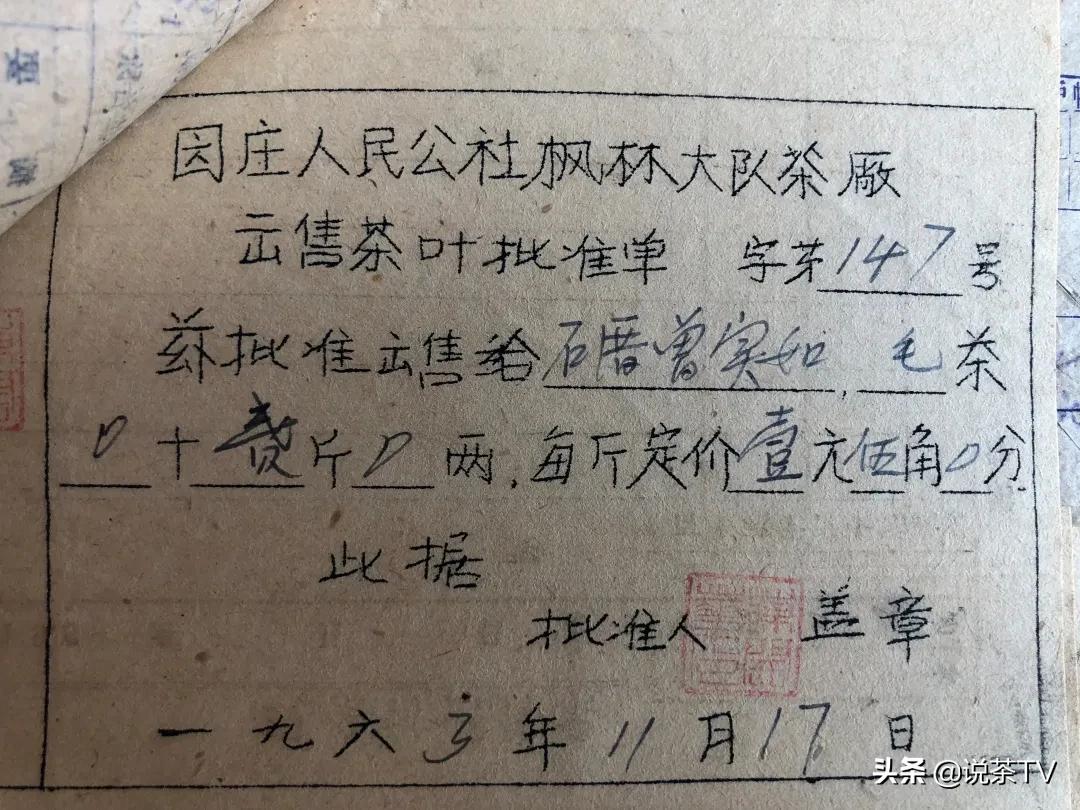 因庄人民公社枫林大队茶厰
出售茶叶批准单 字第147号
兹批准出售给石厝曾实如,毛茶
0十贰斤0两,每斤定价壹元伍角0分
此据
批准人 盖章
一九六三年11月17日
头条 @说茶TV